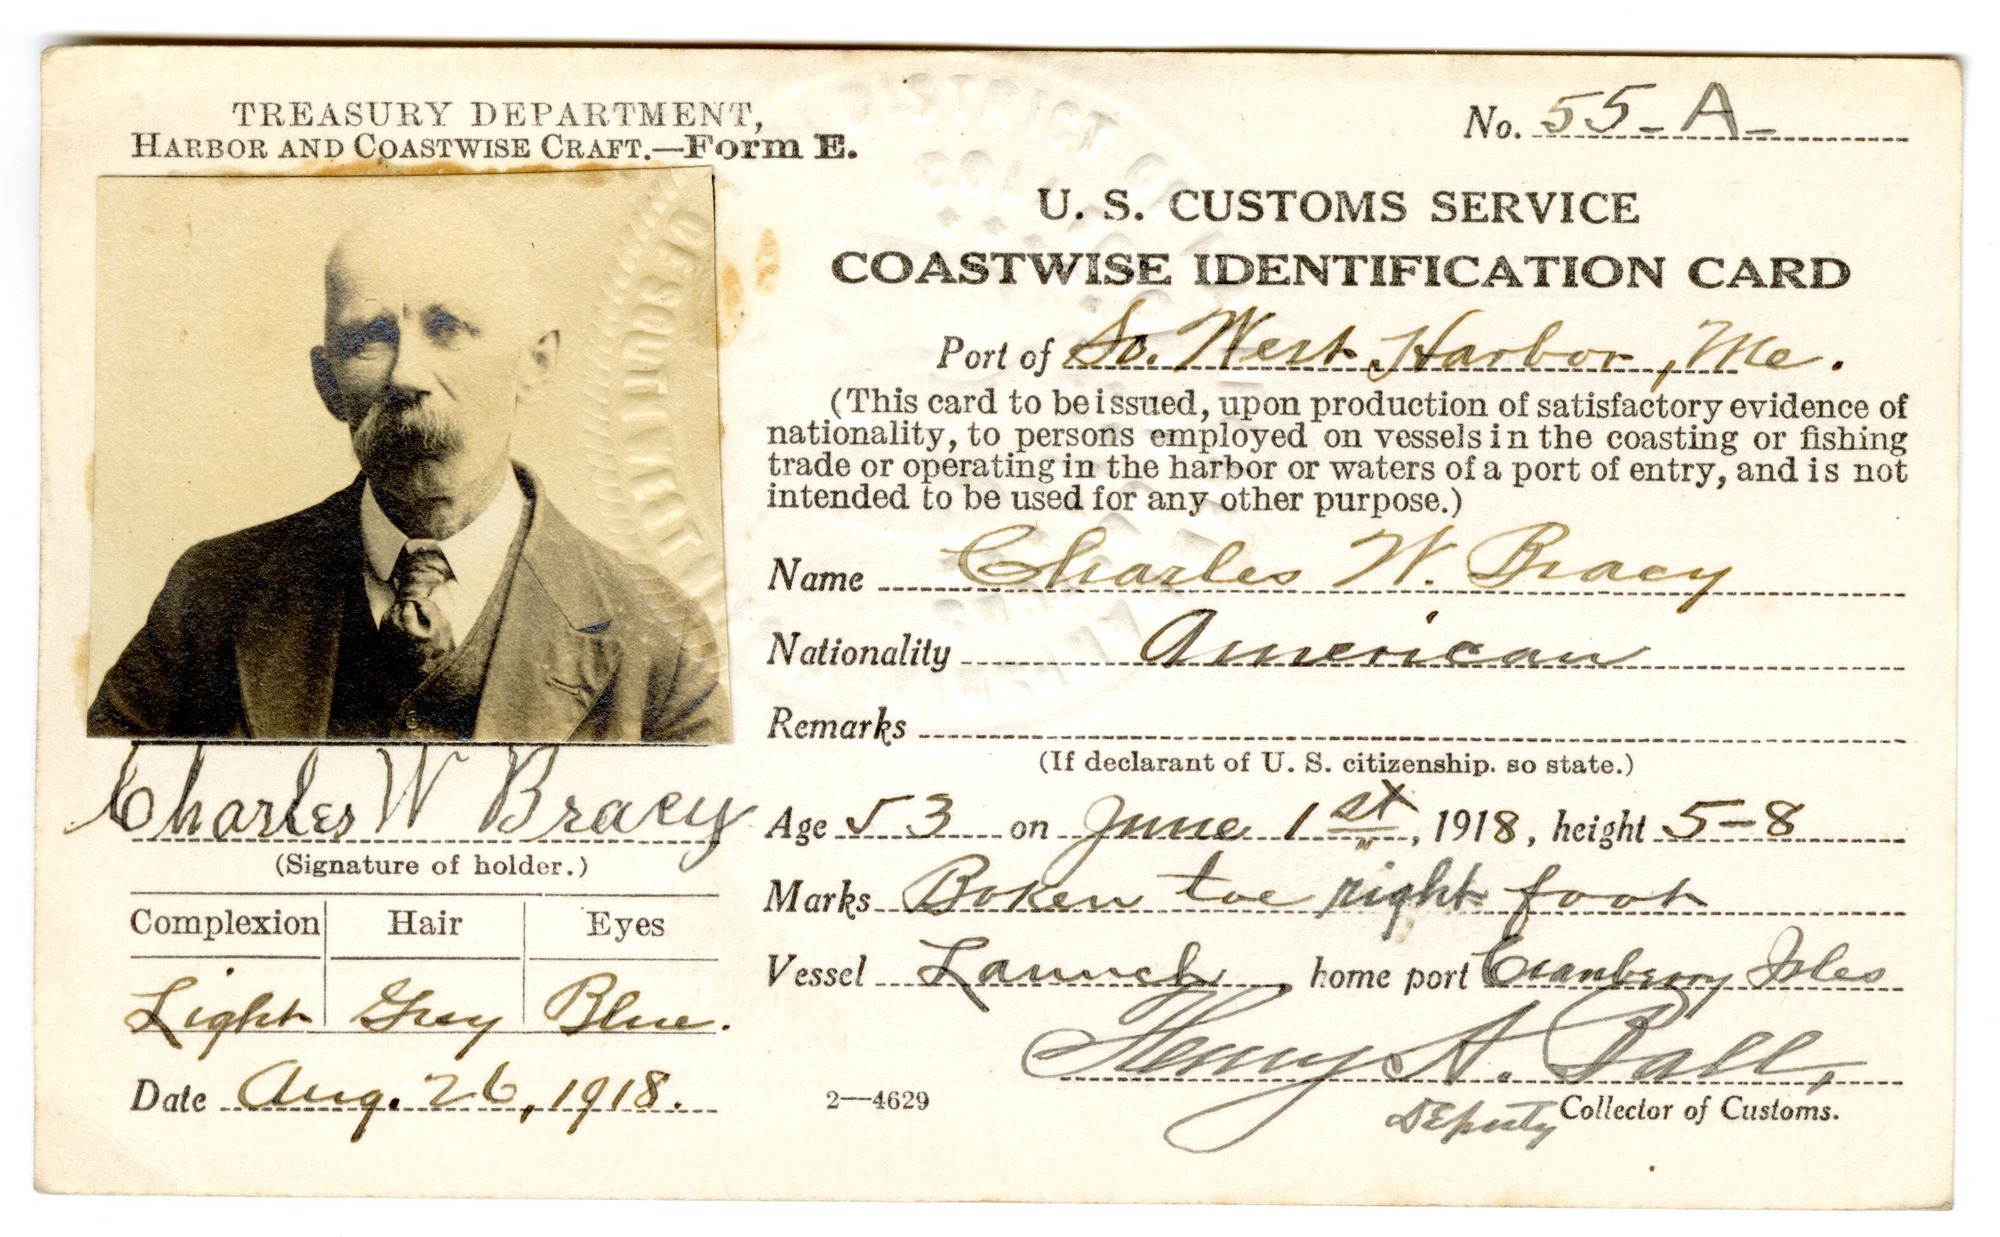 TREASURY DEPARTMENT,
HARBOR AND COASTWISE CRAFT.—Form E.
No. 55-A-
U. S. CUSTOMS SERVICE
COASTWISE IDENTIFICATION CARD
Port of So. West Harbor, Me.
(This card to be issued, upon production of satisfactory evidence of
nationality, to persons employed on vessels in the coasting or fishing
trade or operating in the harbor or waters of a port of entry, and is not
intended to be used for any other purpose.)
Name Charles W. Bracy
Nationality American
Remarks
(If declarant of U. S. citizenship. so state.)
Age 53 on June 1st, 1918, height 5-8
Marks Boken toe right foot
Vessel Launch, home port Cranberry Isles
Henry A. Ball,
Deputy Collector of Customs.
Charles W Bracy
(Signature of holder.)
Complexion Hair Eyes
Light Grey Blue.
Date Aug. 26, 1918.
2—4629